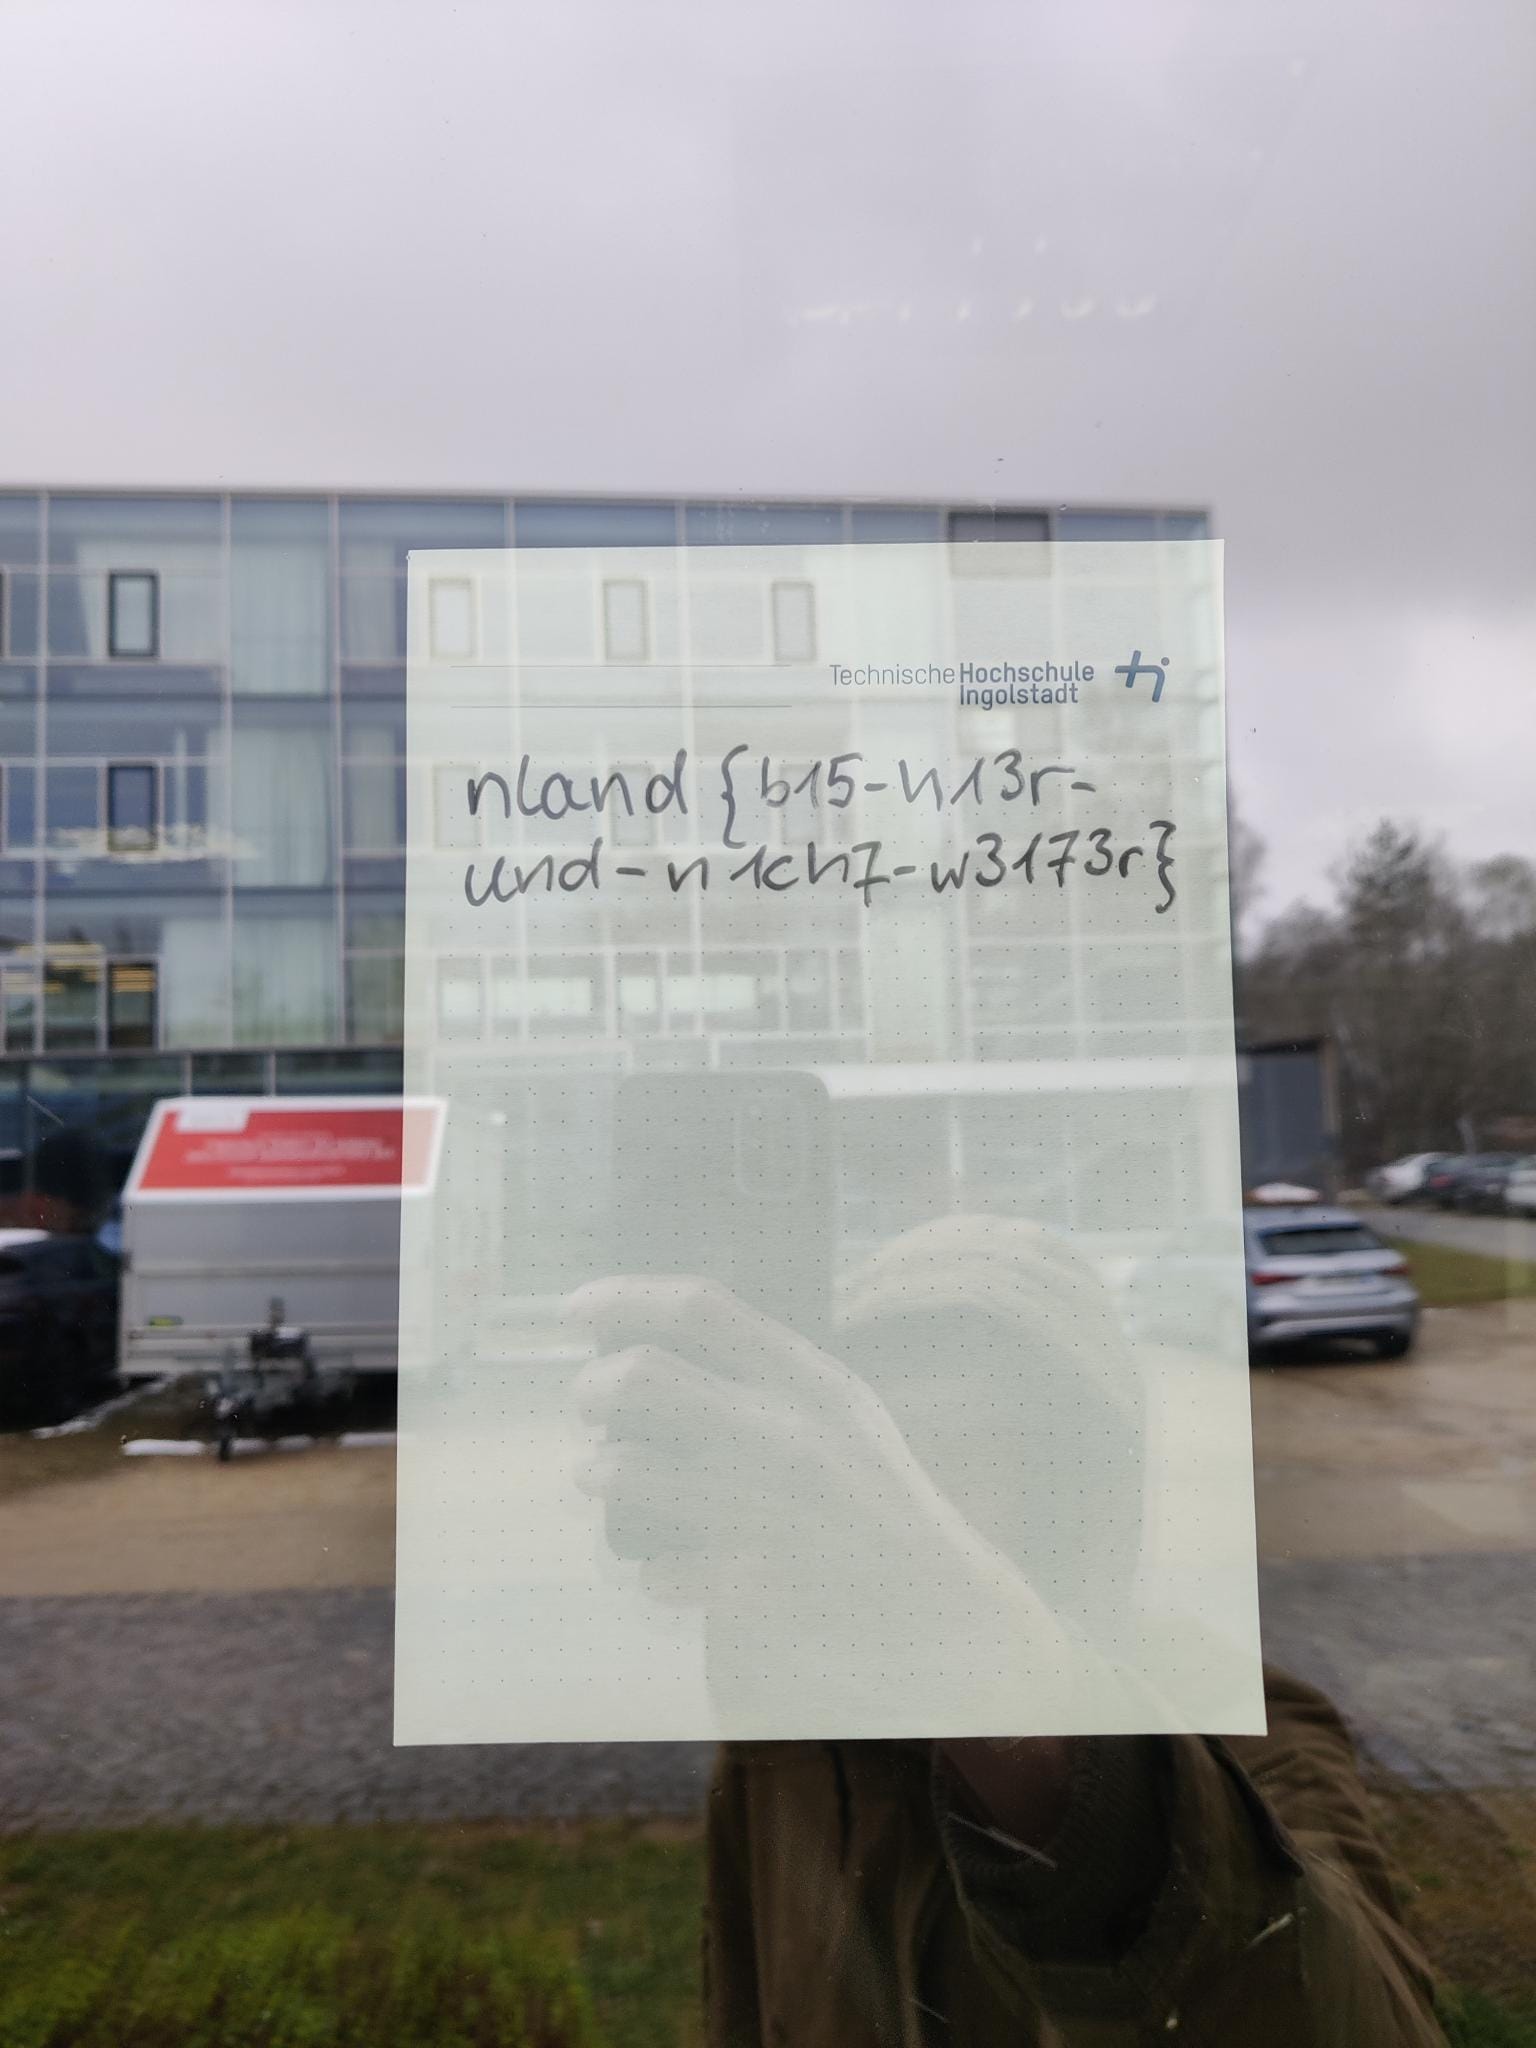 Technische Hochschule
Ingolstadt
nland {b15-h13r-
und-n1ch7-w3173r}